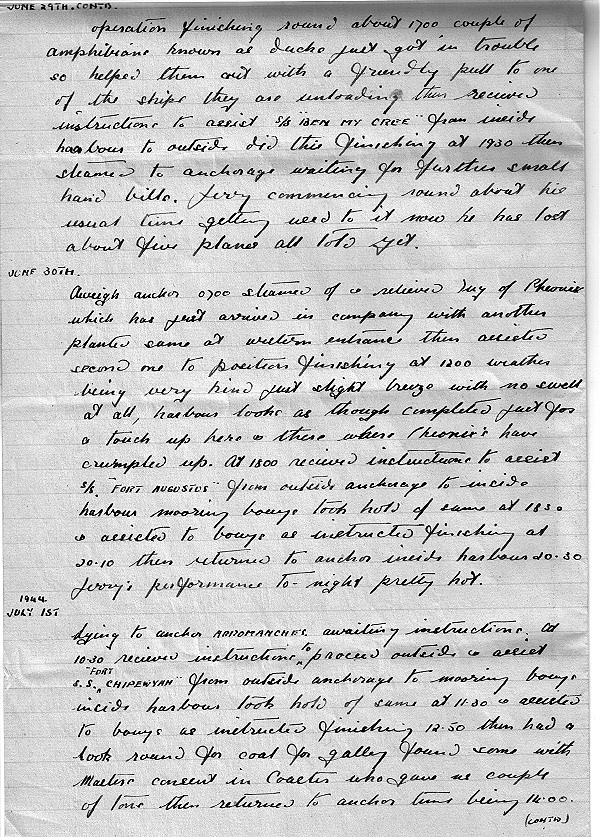 JUNE 29TH. CONTD.
operation finishing round about 1700 couple of
amphibians known as ducks just got in trouble
so helped them out with a friendly pull to one
of the ships they are unloading then recieved
instructions to assist S/S "BEN MY CREE" from inside
harbour to outside did this finishing at 1930 then
steamed to anchorage waiting for further small
hand bills. Jerry commencing round about his
usual time getting used to it now he has lost
about five planes all told yet.
JUNE 30TH.
Aweigh anchor 0700 steamed of & relieved tug of Pheonix
which has just arrived in company with another
planted same at western entrance then assisted
second one to position finishing at 1200 weather
being very kind just slight breeze with no swell
at all, harbour looks as though completed just for
a touch up here & there where Pheonix's have
crumpled up. At 1800 recieved instructions to assist
S/S. "FORT AUGUSTUS" from outside anchorage to inside
harbour mooring bouys took hold of same at 1830
& assisted to bouys as instructed finishing at
20.10 then returned to anchor inside harbour 20.30
Jerry's performance to-night pretty hot.
1944
JULY 1ST
Lying to anchor ARROMANCHES awaiting instructions. At
10.30 recieved instructions to proceed outside & assist
S.S. "FORT CHIPEWYAN" from outside anchorage to mooring bouys
inside harbour took hold of same at 11.30 & assisted
to bouys as instructed finishing 12.50 then had a
look round for coal for galley found some with
Masters consent in Coaster who gave us couple
of tons then returned to anchor time being 14.00.
(CONTD)